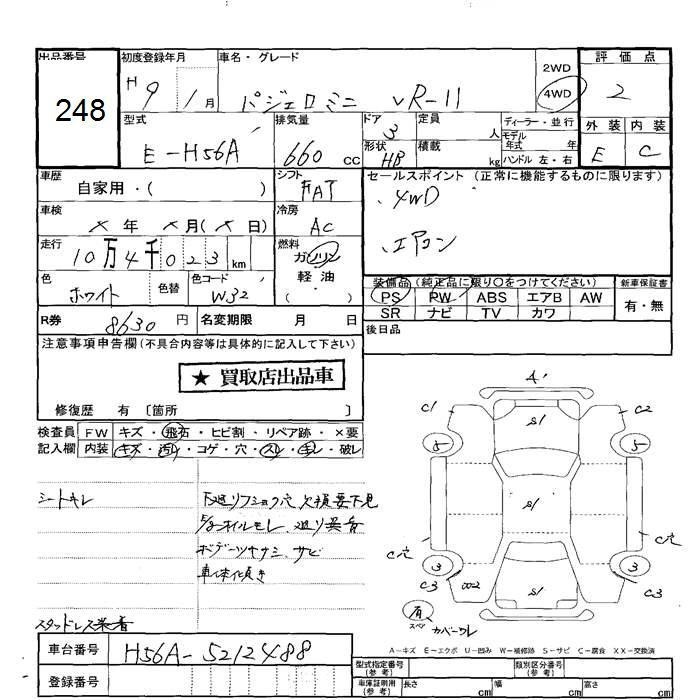 出品番号 初度登録年月 車名・グレード 2WD 評価点
248 H 9年 1月 パジェロミニ VR-II 4WD 2
型式 排気量 ドア 定員 ディーラー・並行 外装 内装
E-H56A 660cc 3 人 モデル年式 年 E C
形状 HB 積載 kg ハンドル 左・右
車歴 自家用・( ) シフト FAT セールスポイント (正常に機能するものに限ります)
車検 × 年 ×月(× 日) 冷房 AC 4WD
走行 10万4千023km 燃料 ガソリン 軽油 ( ) エアコン
色 ホワイト 色替 色コード W32 装備品 (純正品に限り○をつけてください) 新車保証書
PS PW ABS エアB AW 有・無
SR ナビ TV カワ
R券 8630円 名変期限 月 日 後日品
注意事項申告欄(不具合内容等は具体的に記入して下さい)
★ 買取店出品車
修復歴 有 〔箇所 〕
検査員 FW キズ・飛石・ヒビ割・リペア跡・×要
記入欄 内装 キズ・汚れ・コゲ・穴・スレ・キレ・破レ
シートキレ
ボデーツキサシ、サビ
車体傾き
スタッドレス装着
A'
C1 S1 C2
5 5
S1
C穴 C穴
3 3
C3 S1 C3
有 スペア カバーワレ
A-キズ E-エクボ U-凹み W-補修跡 S-サビ C-腐食 XX-交換済
車台番号 H56A-5212488
登録番号
型式指定番号(参考) 類別区分番号(参考)
車庫証明用(参考) 長さ cm 幅 cm 高さ cm